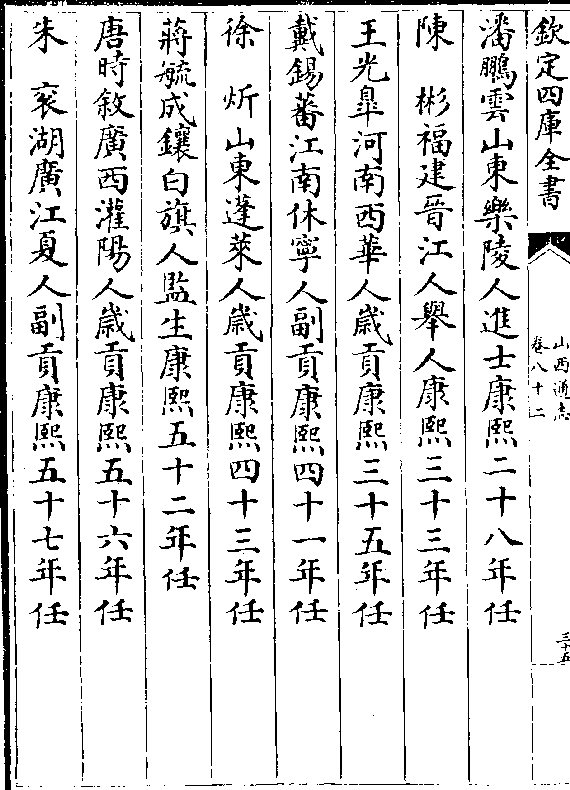 欽定四庫全書
山西通志
卷八十二
三十五
潘鵬雲山東樂陵人進士康熙二十八年任
陳彬福建晉江人舉人康熙三十三年任
王光臯河南西華人歲貢康熙三十五年任
戴錫蕃江南休寧人副貢康熙四十一年任
徐炘山東蓬萊人歲貢康熙四十三年任
蔣毓成鑲白旗人監生康熙五十二年任
唐時敘廣西灌陽人歲貢康熙五十六年任
朱衮湖廣江夏人副貢康熙五十七年任